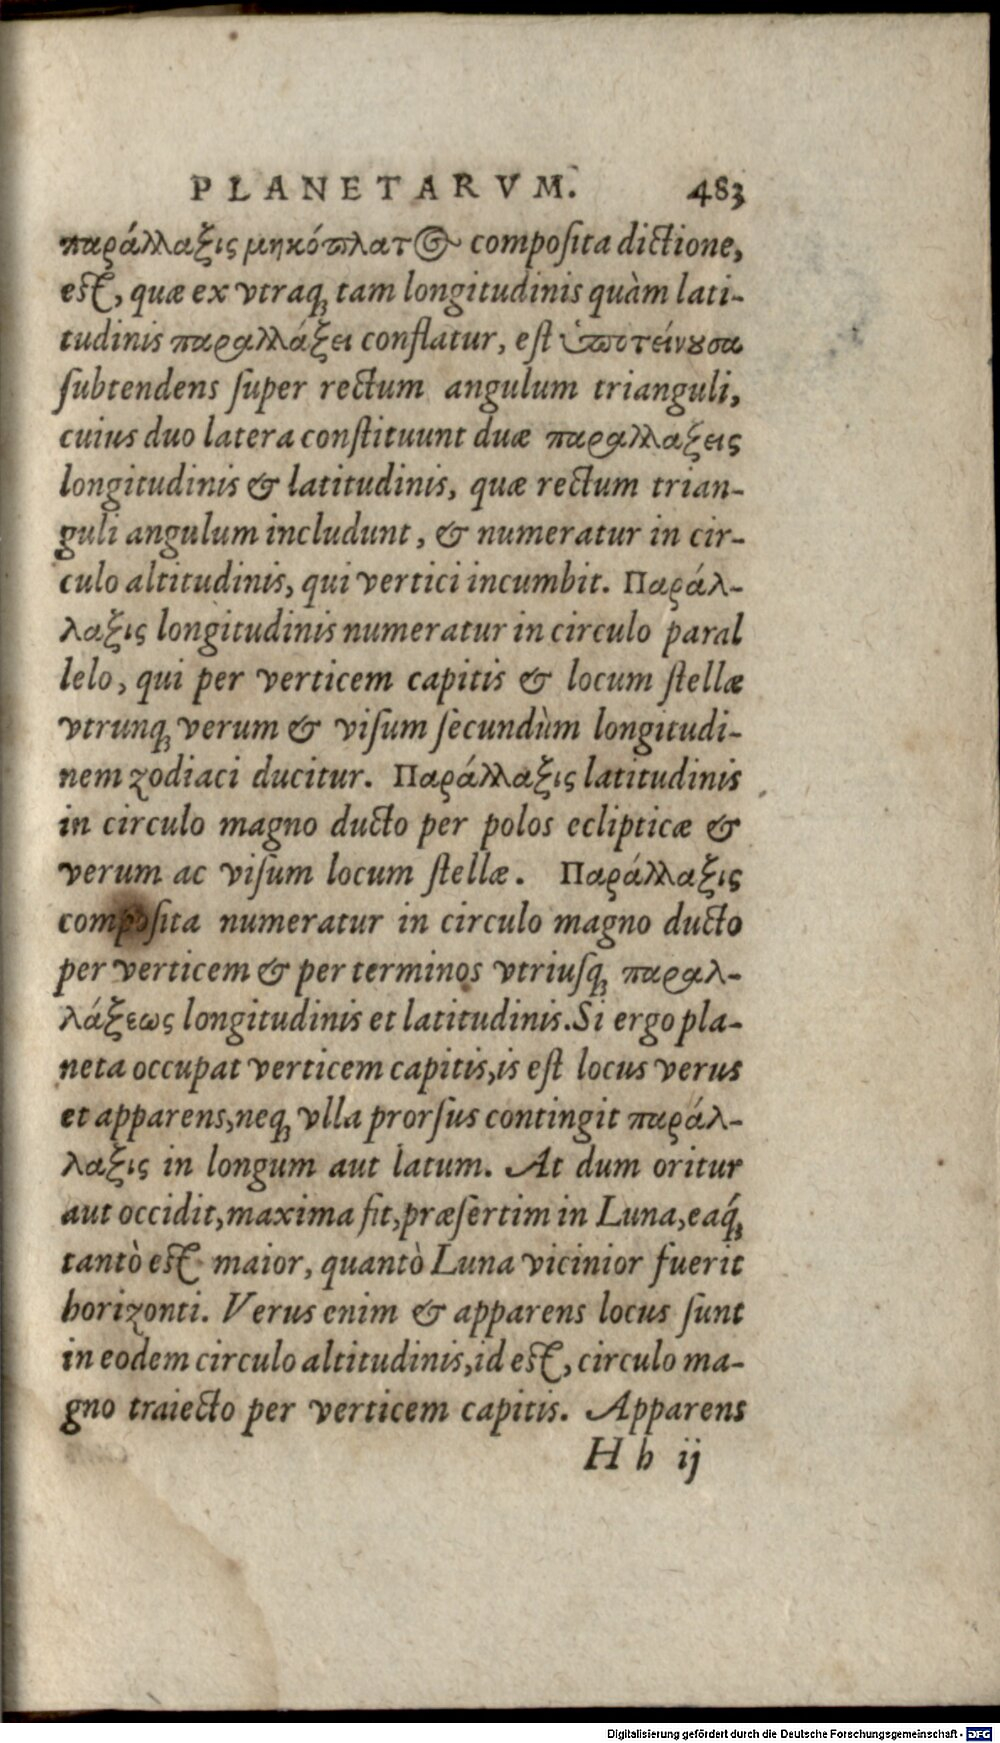 PLANETARVM. 483
παράλλαξις μηκόπλατος composita dictione,
est, quæ ex vtraq; tam longitudinis quàm lati-
tudinis παραλλάξει conflatur, est ὑποτείνουσα
subtendens super rectum angulum trianguli,
cuius duo latera constituunt duæ παραλλαξεις
longitudinis & latitudinis, quæ rectum trian-
guli angulum includunt, & numeratur in cir-
culo altitudinis, qui vertici incumbit. Παράλ-
λαξις longitudinis numeratur in circulo paral
lelo, qui per verticem capitis & locum stellæ
vtrunq; verum & visum secundùm longitudi-
nem zodiaci ducitur. Παράλλαξις latitudinis
in circulo magno ducto per polos eclipticæ &
verum ac visum locum stellæ. Παράλλαξις
composita numeratur in circulo magno ducto
per verticem & per terminos vtriusq; παραλ-
λάξεως longitudinis et latitudinis. Si ergo pla-
neta occupat verticem capitis, is est locus verus
et apparens, neq; vlla prorsus contingit παράλ-
λαξις in longum aut latum. At dum oritur
aut occidit, maxima fit, præsertim in Luna, eaq́;
tantò est maior, quantò Luna vicinior fuerit
horizonti. Verus enim & apparens locus sunt
in eodem circulo altitudinis, id est, circulo ma-
gno traiecto per verticem capitis. Apparens
H h ij
Digitalisierung gefördert durch die Deutsche Forschungsgemeinschaft - DFG